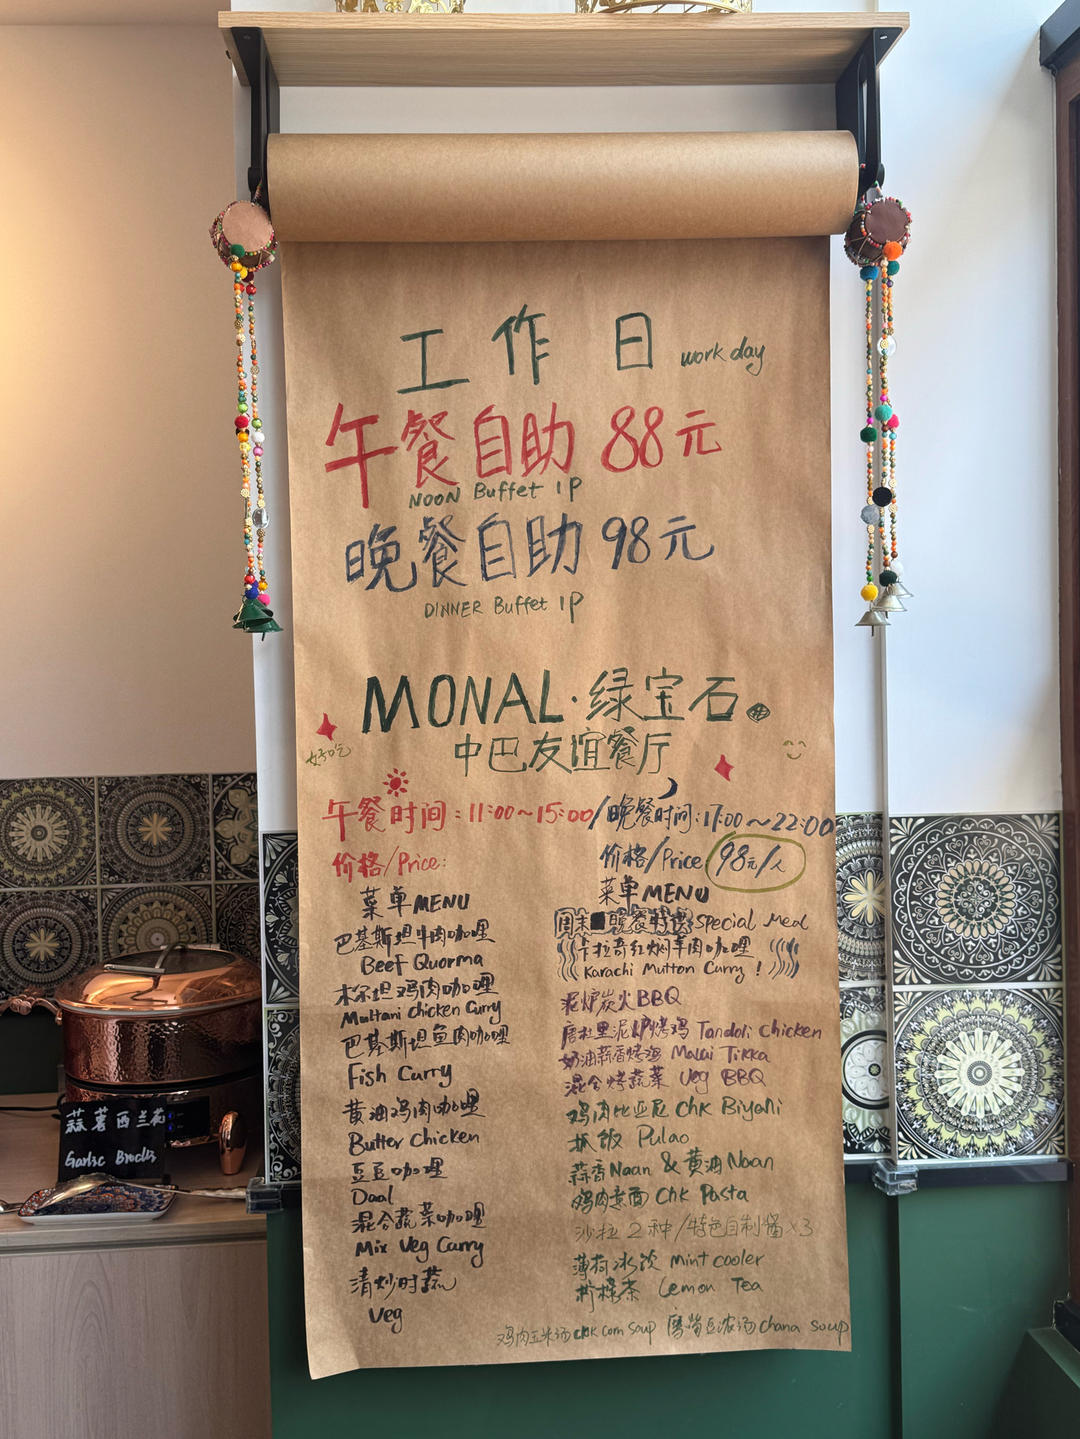 工作日 work day
午餐自助 88元
NOON Buffet 1P
晚餐自助 98元
DINNER Buffet 1P
MONAL·绿宝石
好吃
中巴友谊餐厅
午餐时间:11:00~15:00/晚餐时间:17:00~22:00
价格/Price:
菜单MENU
巴基斯坦牛肉咖喱
Beef Quorma
木尔坦鸡肉咖喱
Multani chicken Curry
巴基斯坦鱼肉咖喱
Fish Curry
黄油鸡肉咖喱
Butter Chicken
豆豆咖喱
Daal
混合蔬菜咖喱
Mix Veg Curry
清炒时蔬
Veg
价格/Price 98元/人
菜单MENU
周末 晚餐特选 Special Meal
卡拉奇红焖羊肉咖喱
Karachi Mutton Curry!
泥炉炭火BBQ
唐杜里泥炉烤鸡 Tandoli Chicken
奶油蒜香烤鸡 Malai Tikka
混合烤蔬菜 Veg BBQ
鸡肉比亚尼 Chk Biyani
抓饭 Pulao
蒜香Naan & 黄油Naan
鸡肉意面 Chk Pasta
沙拉2种/特色自制酱x3
薄荷冰饮 mint cooler
柠檬茶 Lemon Tea
鸡肉玉米汤 chk corn soup 鹰嘴豆浓汤 chana soup
蒜蓉西兰花
Garlic